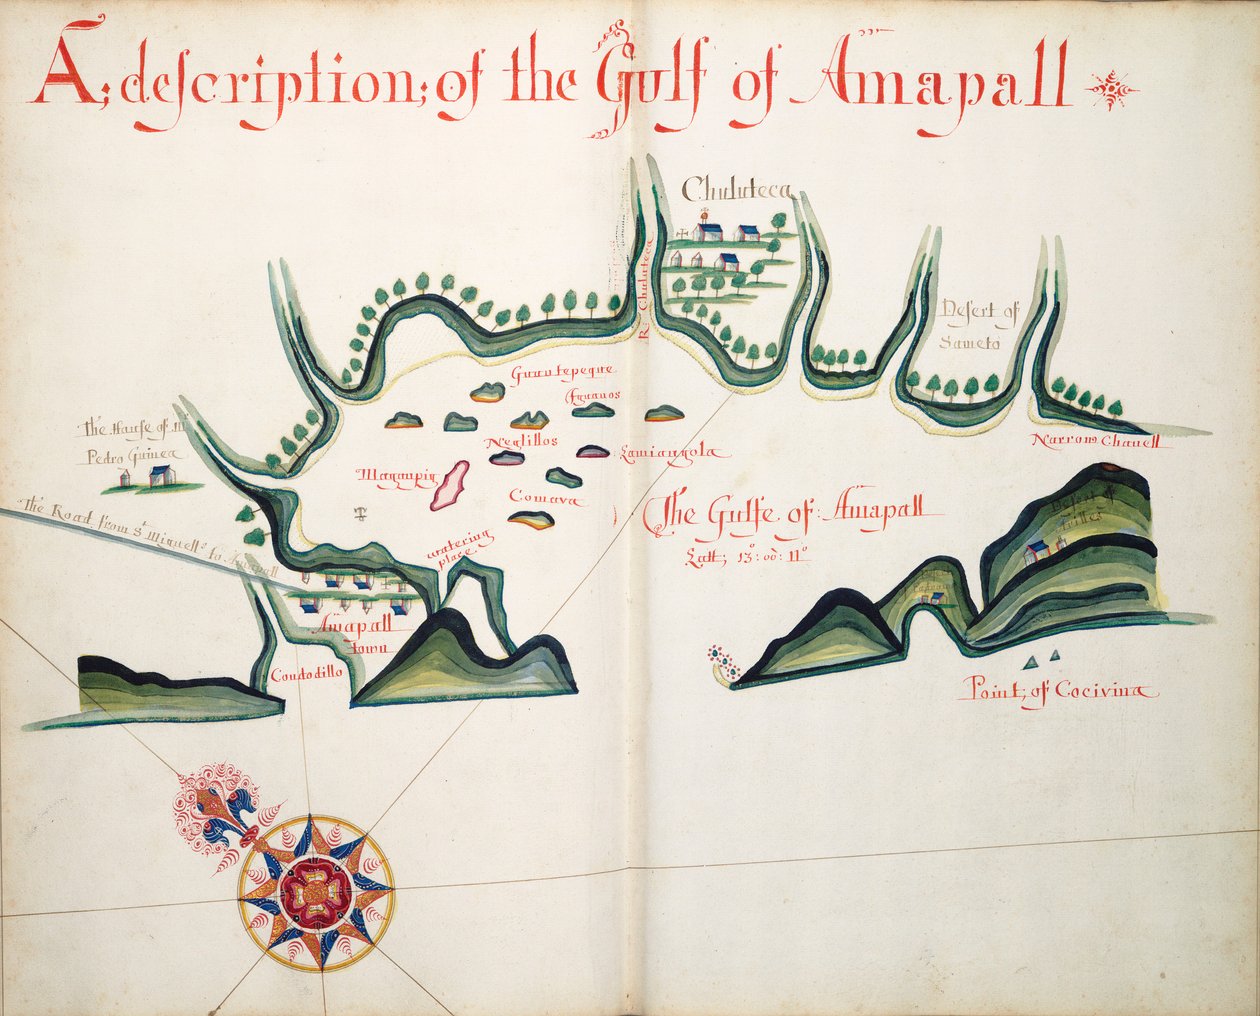 A; description; of the Gulf of Amapall
Chuluteca
R. Chuluteca
Desert of
Sameto
Guantepeque
Aguanos
Narrow Chanell
The House of
Pedro Guinea
Neglillos
Lamiangola
Mayaupig
Comava
The Gulfe of: Amapall
Latt; 13º: 00: 11º
The Road from St Miguells to Amapall
watering
place
Amapall
town
Condodillo
Point; of Cocivina